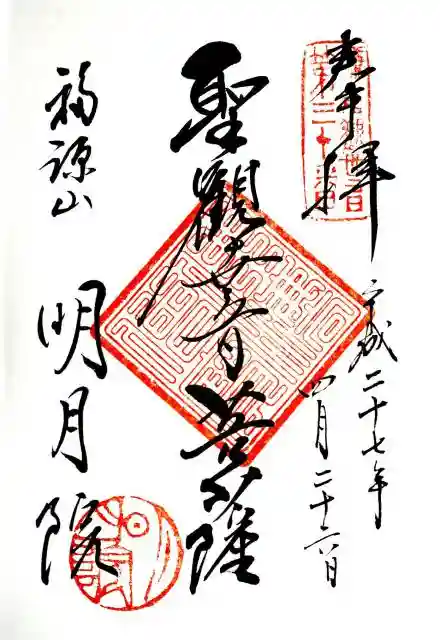 奉拝
平成二十七年
四月二十六日
聖觀世音菩薩
福源山
明月院